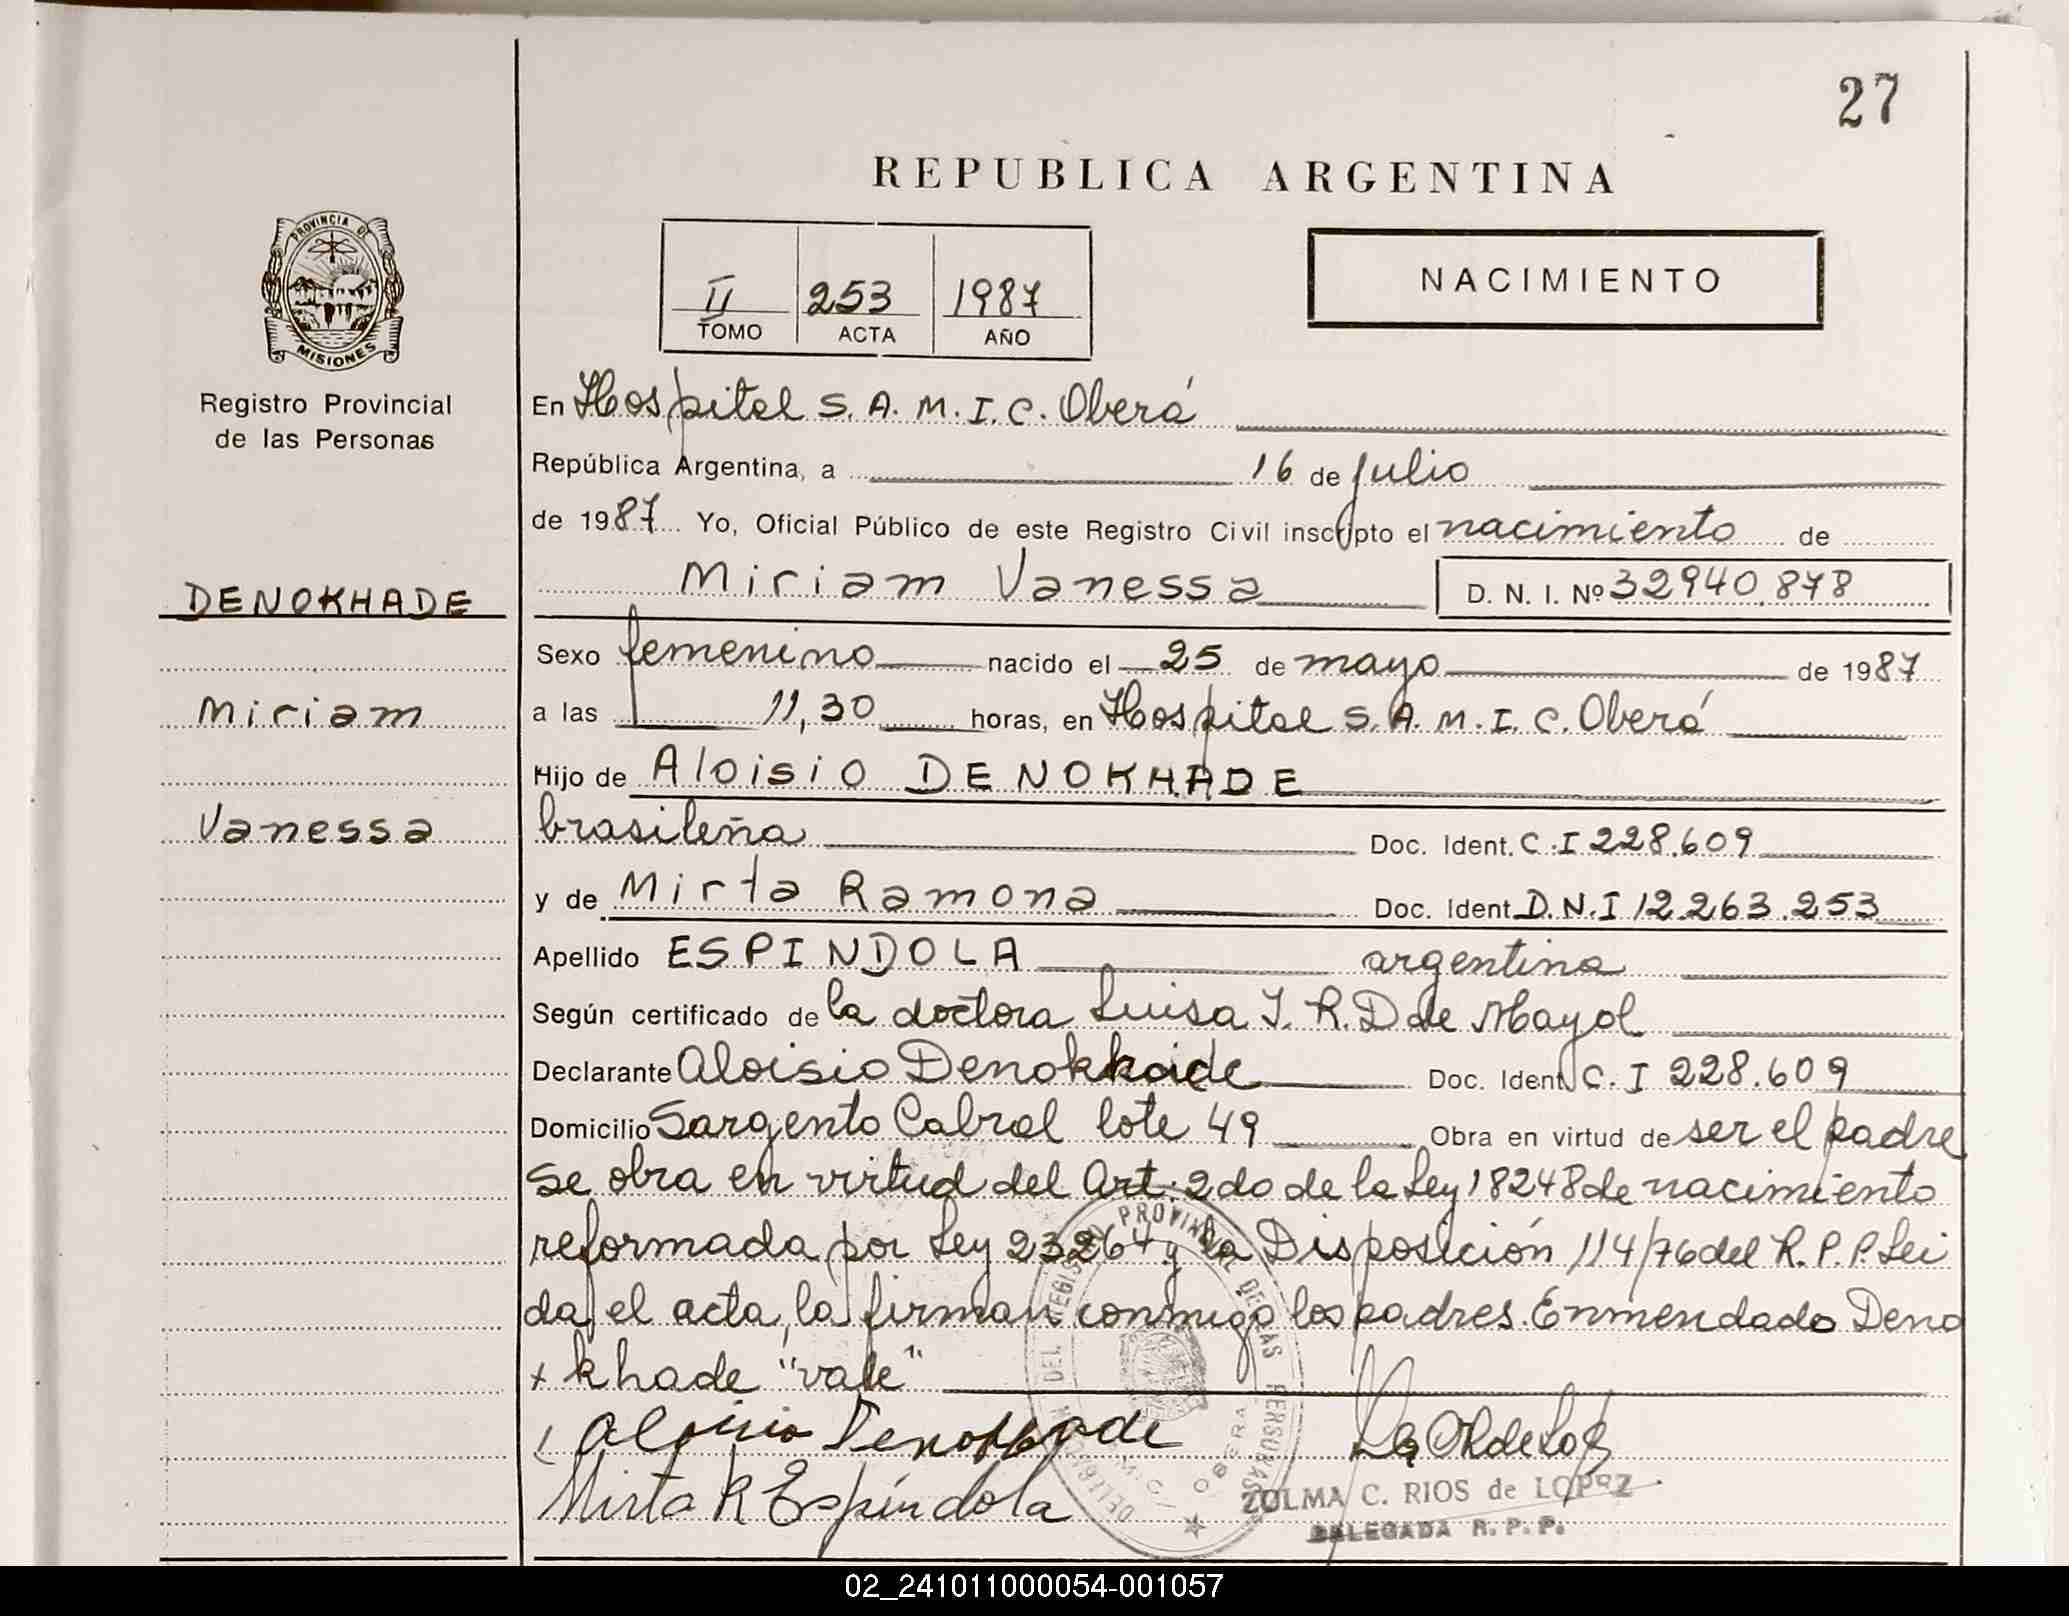 27
REPUBLICA ARGENTINA
PROVINCIA DE
MISIONES
Registro Provincial
de las Personas
II 253 1987
TOMO ACTA AÑO
NACIMIENTO
En Hospital S. A. M. I. C. Oberá
República Argentina, a 16 de julio
de 1987 Yo, Oficial Público de este Registro Civil inscripto el nacimiento de
DENOKHADE
Miriam Vanessa D. N. I. Nº 32940.878
Sexo femenino nacido el 25 de mayo de 1987
Miriam
a las 11,30 horas, en Hospital S. A. M. I. C. Oberá
Hijo de Aloisio DENOKHADE
Vanessa
brasileña Doc. Ident. C.I 228.609
y de Mirta Ramona Doc. Ident. D.N.I 12.263.253
Apellido ESPINDOLA argentina
Según certificado de la doctora Luisa I. R. D de Mayol
Declarante Aloisio Denokhade Doc. Ident. C. I 228.609
Domicilio Sargento Cabral lote 49 Obra en virtud de ser el padre
se obra en virtud del Art. 2do de la Ley 18248 de nacimiento
reformada por Ley 23264 y la Disposición 114/76 del R. P. P. Lei
da el acta, la firman conmigo los padres. Enmendado Deno
x khade "vale"
Aloisio Denokhade
Mirta R Espíndola
ZULMA C. RIOS de LOPEZ
DELEGADA R. P. P.
DEL REGISTRO PROVINCIAL DE LAS PERSONAS
OBERA
02_241011000054-001057